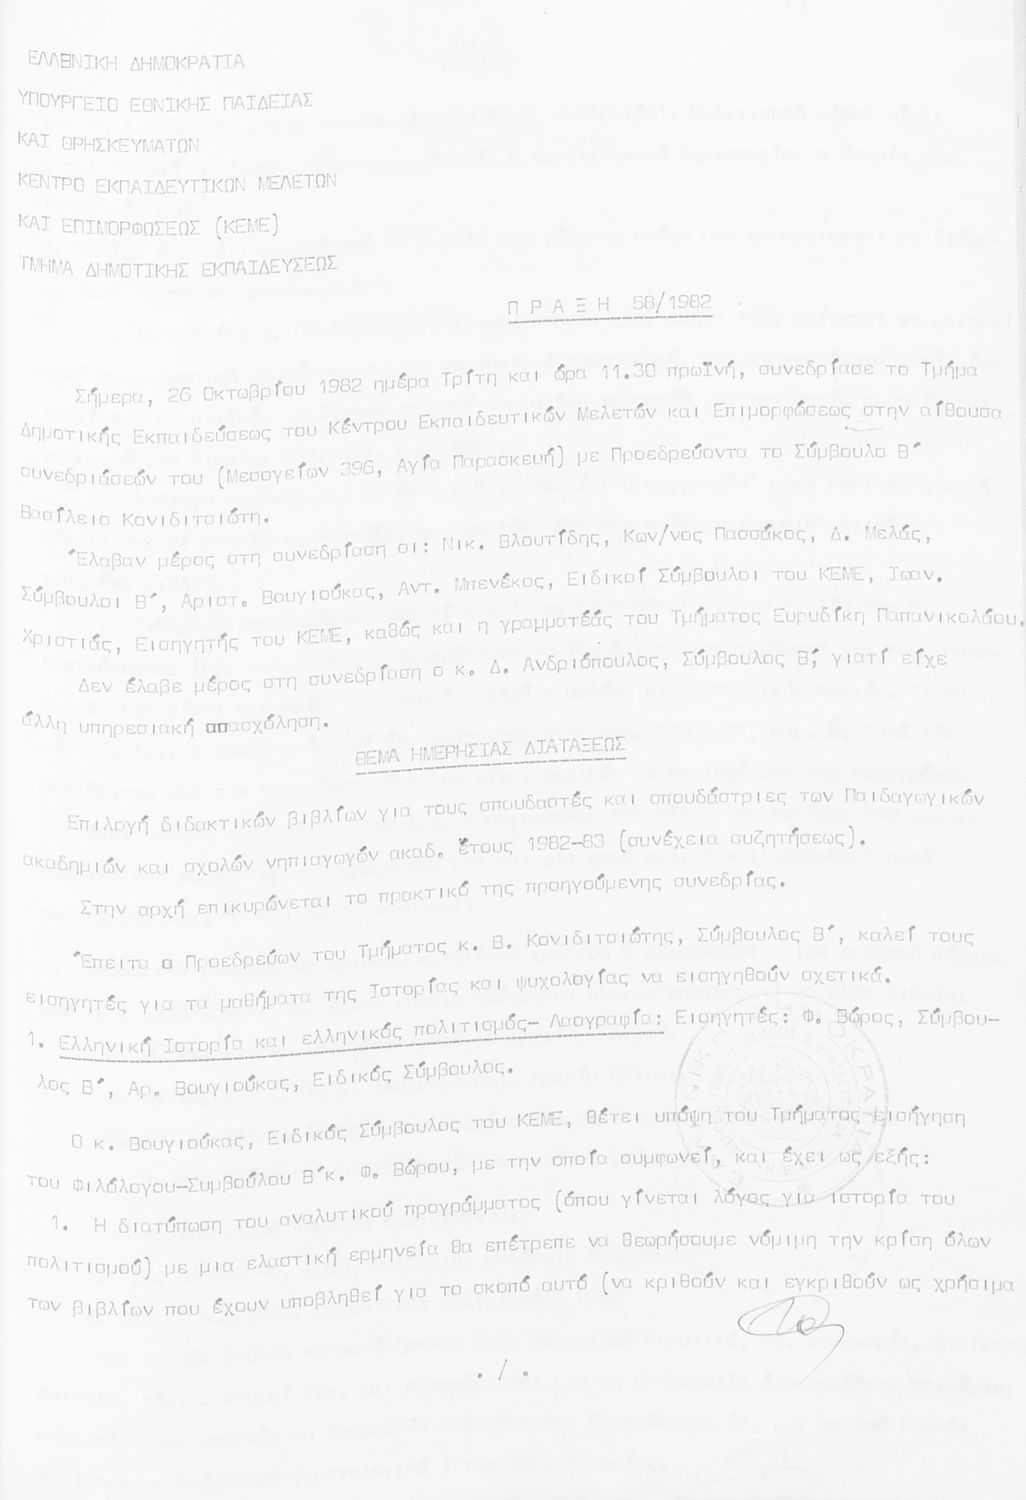 ΕΛΛΗΝΙΚΗ ΔΗΜΟΚΡΑΤΙΑ
ΥΠΟΥΡΓΕΙΟ ΕΘΝΙΚΗΣ ΠΑΙΔΕΙΑΣ
ΚΑΙ ΘΡΗΣΚΕΥΜΑΤΩΝ
ΚΕΝΤΡΟ ΕΚΠΑΙΔΕΥΤΙΚΩΝ ΜΕΛΕΤΩΝ
ΚΑΙ ΕΠΙΜΟΡΦΩΣΕΩΣ (ΚΕΜΕ)
ΤΜΗΜΑ ΔΗΜΟΤΙΚΗΣ ΕΚΠΑΙΔΕΥΣΕΩΣ
Π Ρ Α Ξ Η 58/1982
Σήμερα, 26 Οκτωβρίου 1982 ημέρα Τρίτη και ώρα 11.30 πρωϊνή, συνεδρίασε το Τμήμα
Δημοτικής Εκπαιδεύσεως του Κέντρου Εκπαιδευτικών Μελετών και Επιμορφώσεως στην αίθουσα
συνεδριάσεών του (Μεσογείων 396, Αγία Παρασκευή) με Προεδρεύοντα το Σύμβουλο Β΄
Βασίλειο Κονιδιτσιώτη.
Έλαβαν μέρος στη συνεδρίαση οι: Νικ. Βλουτίδης, Κων/νος Πασσάκος, Δ. Μελάς,
Σύμβουλοι Β΄, Αριστ. Βουγιούκας, Αντ. Μπενέκος, Ειδικοί Σύμβουλοι του ΚΕΜΕ, Ιωαν.
Χριστιάς, Εισηγητής του ΚΕΜΕ, καθώς και η γραμματέάς του Τμήματος Ευρυδίκη Παπανικολάου.
Δεν έλαβε μέρος στη συνεδρίαση ο κ. Δ. Ανδριόπουλος, Σύμβουλος Β΄, γιατί είχε
άλλη υπηρεσιακή απασχόληση.
ΘΕΜΑ ΗΜΕΡΗΣΙΑΣ ΔΙΑΤΑΞΕΩΣ
Επιλογή διδακτικών βιβλίων για τους σπουδαστές και σπουδάστριες των Παιδαγωγικών
ακαδημιών και σχολών νηπιαγωγών ακαδ. έτους 1982-83 (συνέχεια συζητήσεως).
Στην αρχή επικυρώνεται το πρακτικό της προηγούμενης συνεδρίας.
Έπειτα ο Προεδρεύων του Τμήματος κ. Β. Κονιδιτσιώτης, Σύμβουλος Β΄, καλεί τους
εισηγητές για τα μαθήματα της Ιστορίας και ψυχολογίας να εισηγηθούν σχετικά.
1. Ελληνική Ιστορία και ελληνικός πολιτισμός- Λαογραφία: Εισηγητές: Φ. Βώρος, Σύμβου-
λος Β΄, Αρ. Βουγιούκας, Ειδικός Σύμβουλος.
Ο κ. Βουγιούκας, Ειδικός Σύμβουλος του ΚΕΜΕ, θέτει υπόψη του Τμήματος εισήγηση
του Φιλόλογου-Συμβούλου Β΄κ. Φ. Βώρου, με την οποία συμφωνεί, και έχει ως εξής:
1. Η διατύπωση του αναλυτικού προγράμματος (όπου γίνεται λόγος για ιστορία του
πολιτισμού) με μια ελαστική ερμηνεία θα επέτρεπε να θεωρήσουμε νόμιμη την κρίση όλων
των βιβλίων που έχουν υποβληθεί για το σκοπό αυτό (να κριθούν και εγκριθούν ως χρήσιμα
./.